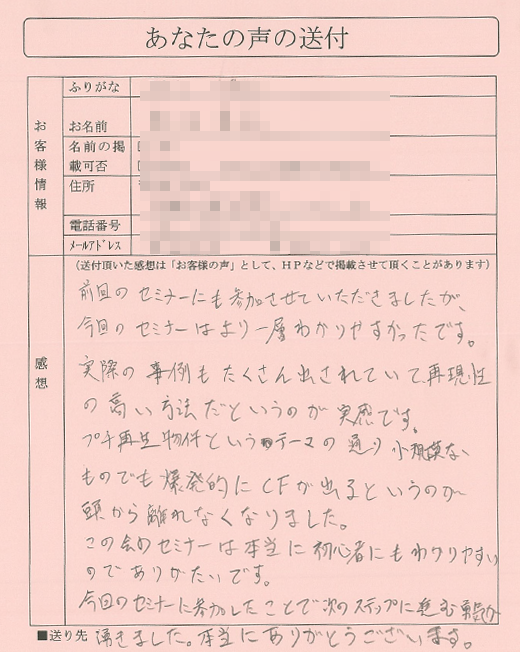 あなたの声の送付
お客様情報
ふりがな
お名前
名前の掲載可否
住所
電話番号
メールアドレス
感想
(送付頂いた感想は「お客様の声」として、HPなどで掲載させて頂くことがあります)
前回のセミナーにも参加させていただきましたが、
今回のセミナーはより一層わかりやすかったです。
実際の事例もたくさん出されていて、再現性
の高い方法だというのが実感です。
プチ再生物件というテーマの通り小規模な
ものでも爆発的にCFが出るというのが
頭から離れなくなりました。
この会のセミナーは本当に初心者にもわかりやすい
のでありがたいです。
今回のセミナーに参加したことで次のステップに進む勇気が
■送り先 湧きました。本当にありがとうございます。